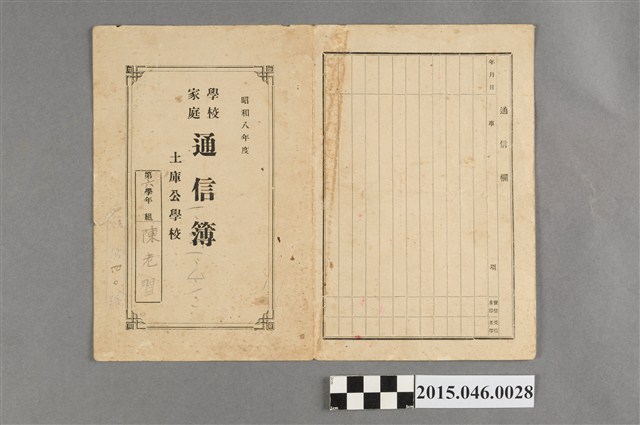 昭和八年度
學校
家庭
通信簿
土庫公學校
第六學年 組
陳老習
通信欄
年月日
事
項
2015.046.0028